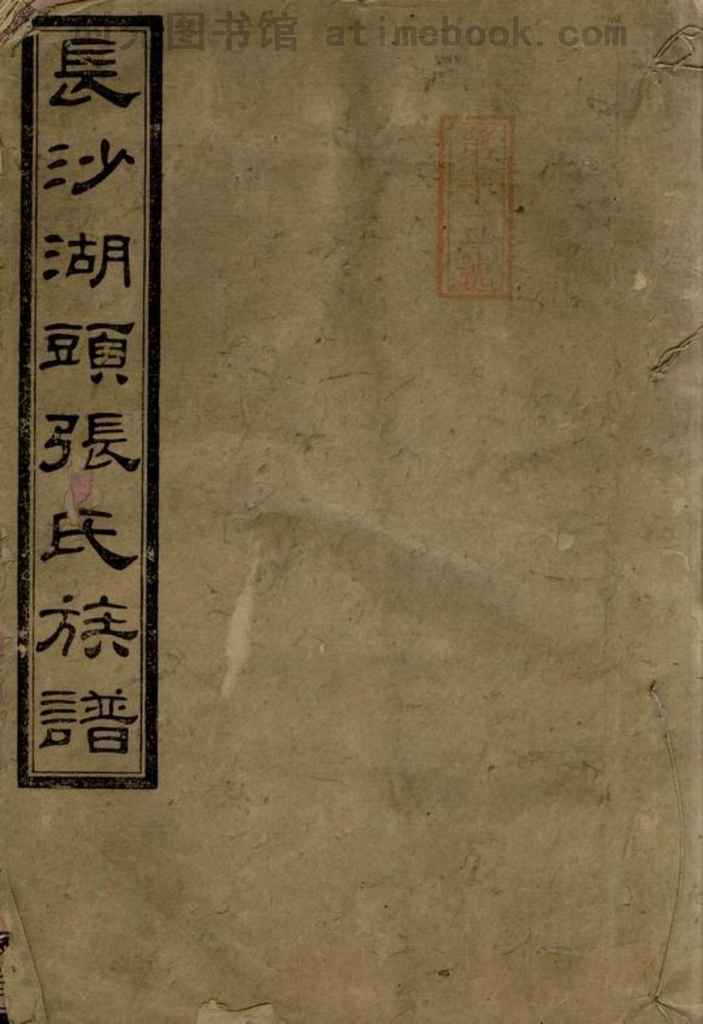 图书馆 atimebook.com
長沙湖頭張氏族譜